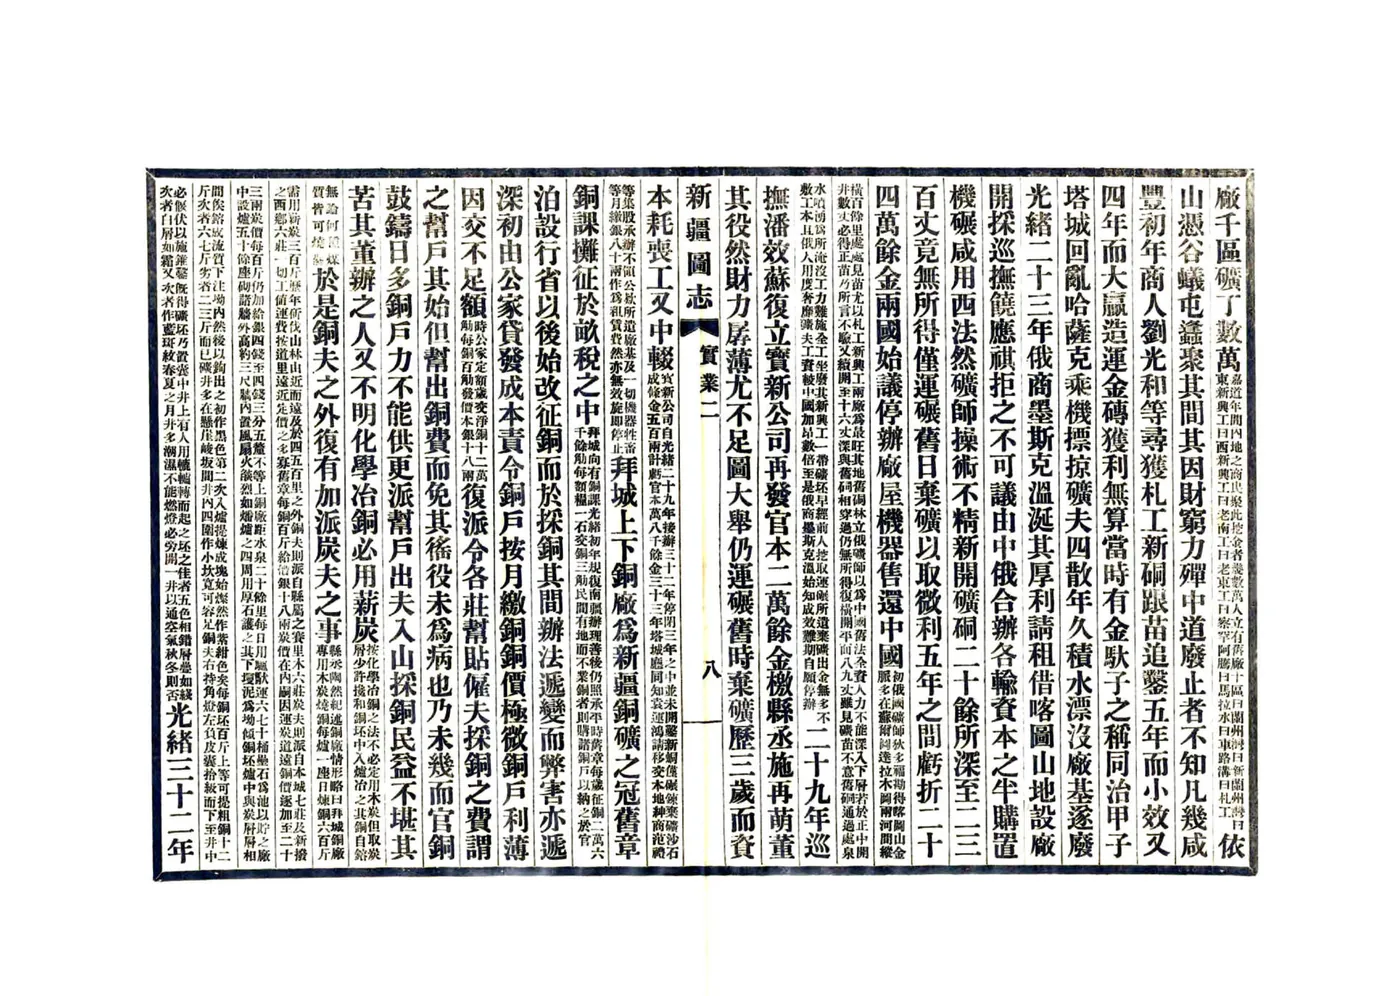 廠千區礦丁數萬嘉道年間內地之商民聚此挖金者幾數萬人立有舊廠十區曰蘭州灣曰新蘭州灣曰東新興工曰西新興工曰老南工曰老東工曰察罕阿騰曰馬拉水曰東路溝曰札工依
山憑谷蟻屯蠭聚其間其因財窮力殫中道廢止者不知凡幾咸
豐初年商人劉光和等尋獲札工新硐跟苗追鑿五年而小效又
四年而大贏造運金磚獲利無算當時有金馱子之稱同治甲子
塔城回亂哈薩克乘機摽掠礦夫四散年久積水漂沒廠基逐廢
光緒二十三年俄商墨斯克溫涎其厚利請租借喀圖山地設廠
開採巡撫饒應祺拒之不可議由中俄合辦各輸資本之半購置
機碾咸用西法然礦師操術不精新開礦硐二十餘所深至二三
百丈竟無所得僅運碾舊日棄礦以取微利五年之間虧折二十
四萬餘金兩國始議停辦廠屋機器售還中國初俄國礦師狄多福勘得喀圖山金脈多在蘇爾圖達拉木圖兩河間縱
橫百餘里處處見苗尤以札工新興工兩廠為最旺其地舊碣林立俄礦師以為中國舊法全資人力不能深入下層若於正中開井數丈必得正苗乃所言不驗又續開至十六丈深與舊硐相穿過仍無所得復橫開平而八九丈雖見礦苗不意舊硐通過處泉
水噴湧為所淹沒工力難施全工坐廢其新興工一帶礦坯早經前人挖取運碾所遺棄礦出金無多不敷工本且俄人用度奢靡礦夫工資較中國加昂數倍至是俄商墨斯克溫始知成效難期自願停辦二十九年巡
撫潘效蘇復立寶新公司再發官本二萬餘金檄縣丞施再萌董
其役然財力孱薄尤不足圖大舉仍運碾舊時棄礦歷三歲而資
新疆圖志 實業二 八
本耗喪工又中輟寶新公司自光緒二十九年接辦三十二年停閉三年之中並未開鑿新硐僅碾鍊棄礦沙石成條金五百兩計虧官本萬八千餘金三十三年塔城廳同知袁運鴻請移交本地紳商范禮
等集股承辦不領公款所遺廠基及一切機器牲畜等月繳銀八十兩作為租賃費然亦無效旋即停止拜城上下銅廠為新疆銅礦之冠舊章
銅課攤征於畝稅之中拜城向有銅課光緒初年規復南疆辦理善後仍照承平時舊章每歲征銅二萬六千餘觔每額糧一石交銅三觔民間有地而不業銅者則購諸銅戶以納之於官
泊設行省以後始改征銅而於採銅其間辦法遞變而弊害亦遞
深初由公家貸發成本責令銅戶按月繳銅銅價極微銅戶利薄
因交不足額時公家定額歲交淨銅十二萬觔每銅百觔發價本銀十八兩復派令各莊幫貼僱夫採銅之費謂
之幫戶其始但幫出銅費而免其徭役未為病也乃未幾而官銅
鼓鑄日多銅戶力不能供更派幫戶出夫入山採銅民益不堪其
苦其董辦之人又不明化學冶銅必用薪炭按化學冶銅之法不必定用木炭但取炭層少許攙和銅坯中入爐冶之其銅自鎔
無論何項煤質皆可燒於是銅夫之外復有加派炭夫之事縣丞陶然紀述銅廠情形略曰拜城銅廠專用木炭燒銅每爐一座日煉銅六百觔
需用薪炭三百斤歷年斫伐山林由近而遠及於四五百里之外銅夫則派自縣屬之賽里木六莊炭夫則派自本城七莊及新撥之西鄉六莊一切工値運費按道里遠近定價之多寡舊章每銅百斤給價銀十八兩炭價在內嗣因運炭道遠銅價遞加至二十
三兩炭價每百斤仍加給銀四錢至四錢三分五釐不等上銅廠距水泉二十餘里每日用驢馱運六七十桶壘石為池以貯之廠中設爐五十餘座砌諸牆外高約三尺牆內置風扇火焱烈如燔爐之四周用厚石護之其下墁泥為坳傾銅坯爐中與炭層層相
間俟鎔成流質下注坳內然後以鉤出之初作黑色第二次入爐提煉成塊始燦然作紫紺色矣每銅坯百斤上等可提粗銅十二斤次者六七斤劣者二三斤而已礦井多在懸崖峻坂間井內四圍作小坎寬可容足銅夫右持角燈左負皮囊拾級而下至井中
必偃伏以施錐鑿既得礦坯乃置囊中井上有人用轆轤轉而起之坯之佳者五色相錯層疊如綫次者白層如霜又次者作藍斑紋春夏之月井多潮濕不能燃燈必旁開一井以通空氣秋冬則否光緒三十二年